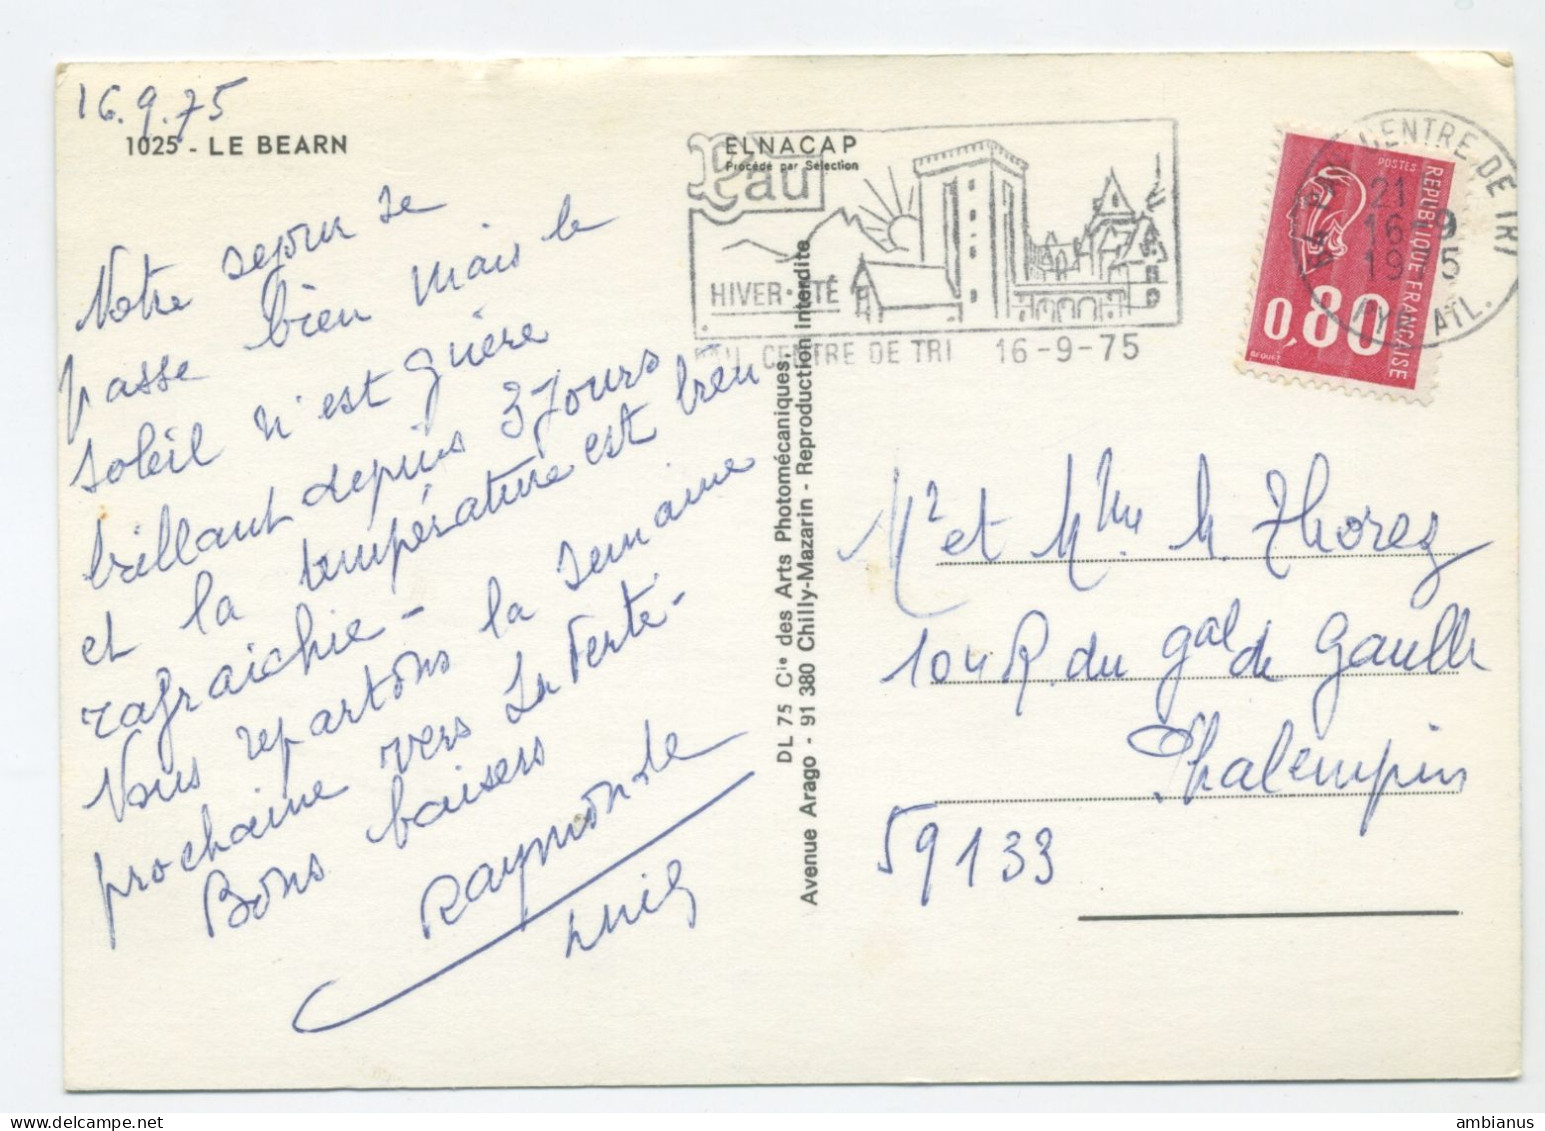 16.9.75
1025 - LE BEARN
Notre sejour se
passe bien mais le
soleil n'est guère
brillant depuis 3 jours
et la température est bien
rafraichie -
Nous repartons la semaine
prochaine vers La Ferté -
Bons baisers
Raymonde
Pau
ELNACAP
Procédé par Sélection
HIVER - ÉTÉ
PAU CENTRE DE TRI 16-9-75
DL 75 Cie des Arts Photomécaniques.
Avenue Arago - 91 380 Chilly-Mazarin - Reproduction interdite
CENTRE DE TRI
21
16-9
1975
PYR. ATL.
POSTES
REPUBLIQUE FRANÇAISE
0,80
BEQUET
Mr et Mme M. Thorez
104 R. du Gal de Gaulle
Phalempin
59133
ambianus
www.delcampe.net